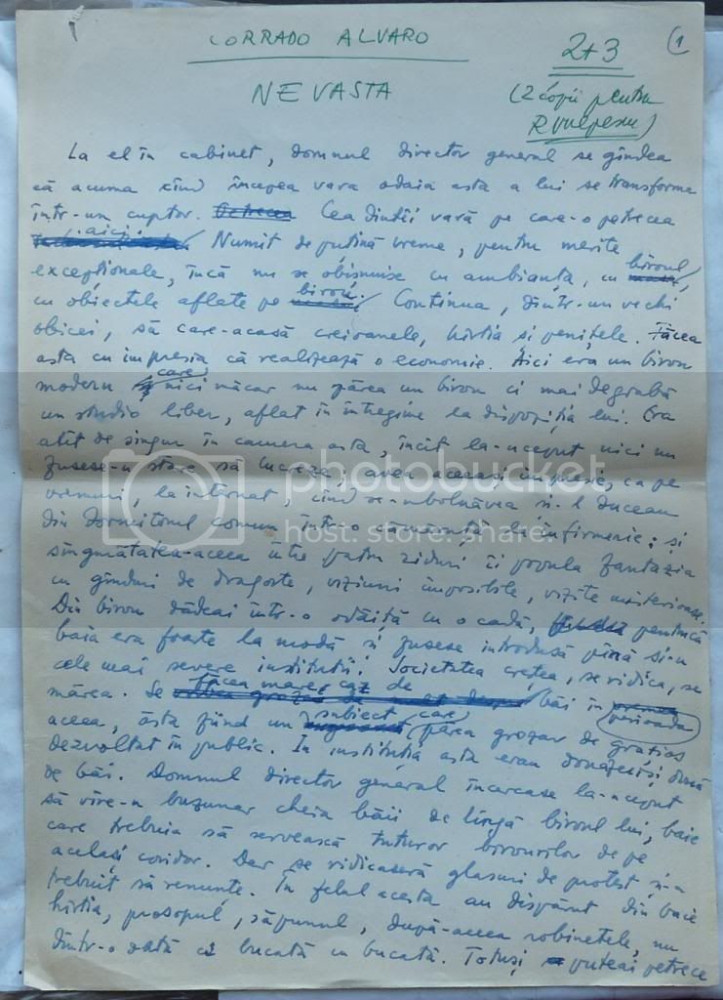 (1
CORRADO ALVARO
2+3
NEVASTA
(2 copii pentru
R Vulpescu)
La el în cabinet, domnul director general se gîndea
că acuma cînd începea vara odaia asta a lui se transforma
într-un cuptor. Petrecea Cea dintîi vară pe care-o petrecea
aici. Numit de puțină vreme, pentru merite
excepționale, încă nu se obișnuise cu ambianța, cu biroul
cu obiectele aflate pe birou. Continua, dintr-un vechi
obicei, să care-acasă creioanele, hîrtia și penițele. Făcea
asta cu impresia că realizează o economie. Aici era un birou
modern care nici măcar nu părea un birou ci mai degrabă
un studio liber, aflat în întregime la dispoziția lui. Era
atît de singur în camera asta, încît la-nceput nici nu
fusese-n stare să lucreze, avea aceeași impresie, ca pe
vremuri, la internat, cînd se-mbolnăvea și-l duceau
din dormitorul comun într-o cămăruță de infirmerie; și
singurătatea-aceea între patru ziduri îi popula fantazia
cu gînduri de dragoste, viziuni imposibile, vizite misterioase.
Din birou dădeai într-o odăiță cu o cadă, pentrucă
baia era foarte la modă și fusese introdusă pînă și-n
cele mai severe instituții. Societatea creștea, se ridica, se
mărea. Se făcea mare caz de băi în perioada
aceea, ăsta fiind un subiect care părea grozav de grațios
dezvoltat în public. În instituția asta erau douăzeci și două
de băi. Domnul director general încercase la-nceput
să vîre-n buzunar cheia băii de lîngă biroul lui, baie
care trebuia să servească tuturor birourilor de pe
același coridor. Dar se ridicaseră glasuri de protest și-a
trebuit să renunțe. În felul acesta au dispărut din baie
hîrtia, prosopul, săpunul, după-aceea robinetele, nu
dintr-o dată ci bucată cu bucată. Totuși puteai petrece
photobucket
host. store. share.